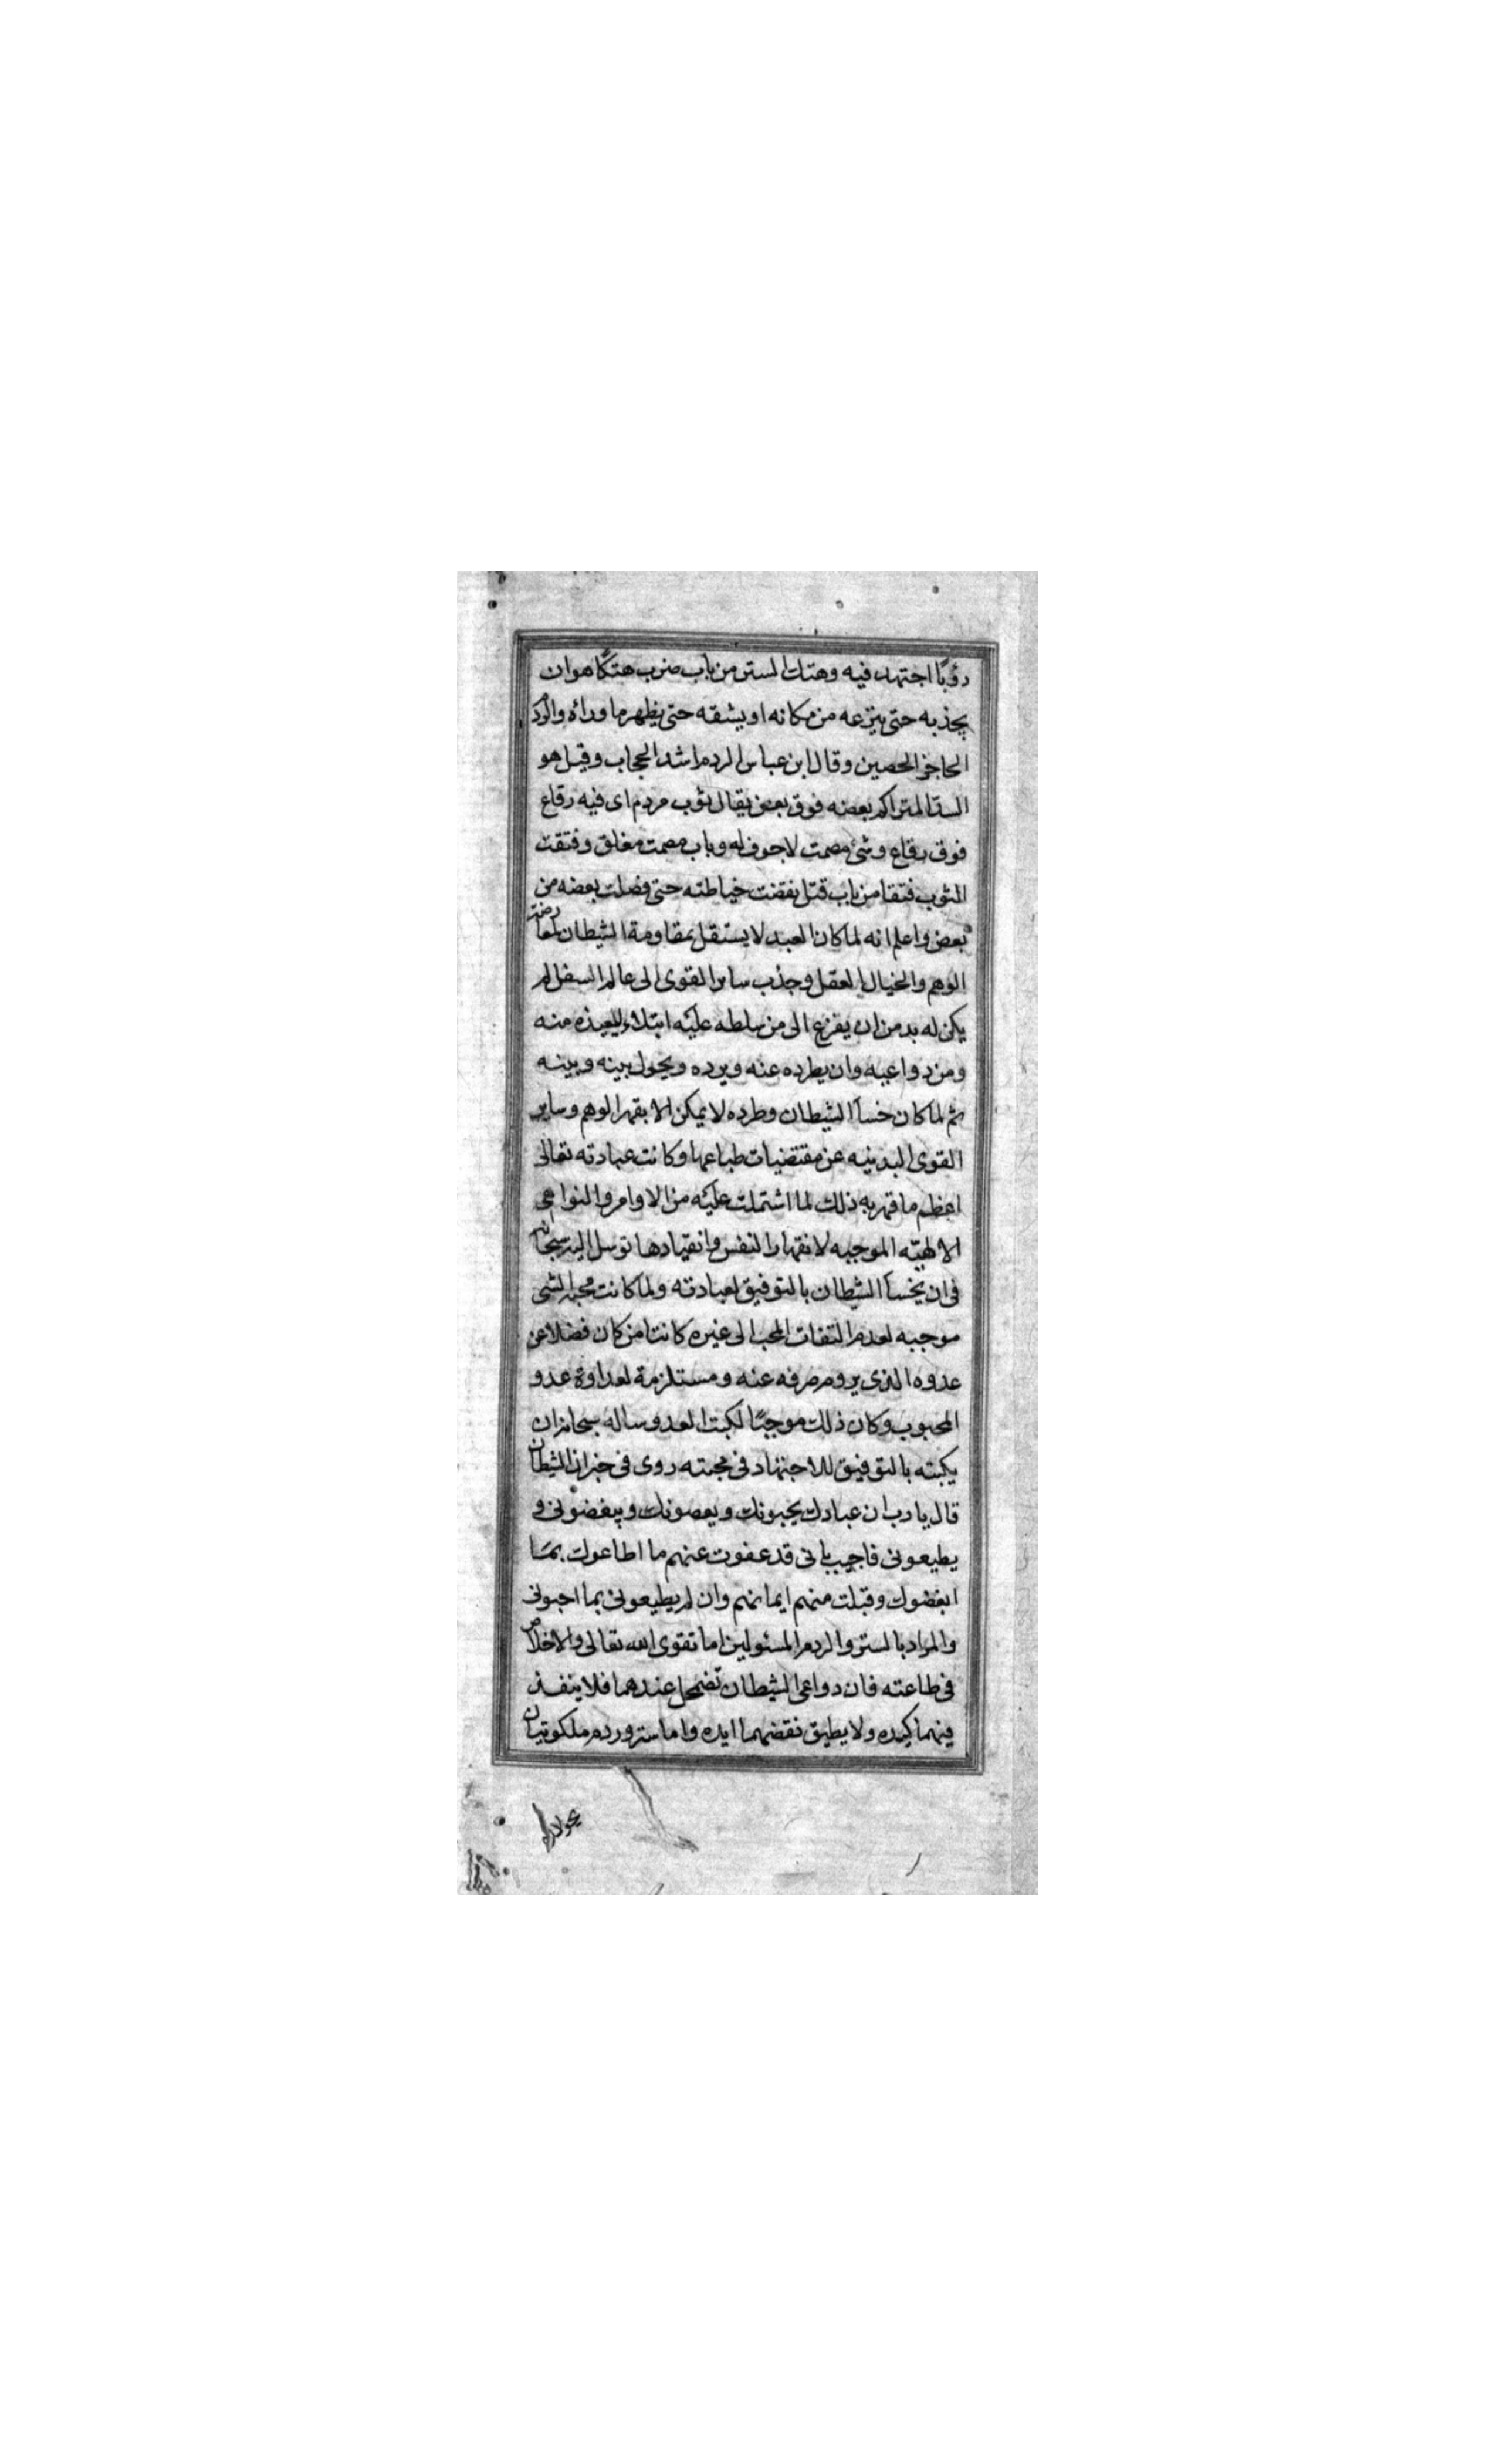 دؤبًا اجتهد فيه وهتك الستر من باب ضرب هتكًا هو ان
يجذبه حتى ينزعه من مكانه او يشقه حتى يظهر ما وراه والردم
الحاجز الحصين وقال ابن عباس الردم اشد الحجاب وقيل هو
السد المتراكم بعضه فوق بعض يقال ثوب مردم اى فيه رقاع
فوق رقاع وشئ مصمت لاجوف له وباب مصمت مغلق وفتقت
الثوب فتقا من باب قتل نقضت خياطته حتى فصلت بعضه من
بعض واعلم انه لما كان العبد لا يستقل بمقاومة الشيطان لمعارضته
الوهم والخيال العقل وجذب ساير القوى الى عالم السفل لم
يكن له بد من ان يفزع الى من سلطه عليه ابتلاء ليعيذه منه
ومن دواعيه وان يطرده عنه ويرده ويحول بينه وبينه
ثم لما كان خسأ الشيطان وطرده لا يمكن الا بقهر الوهم وساير
القوى البدنيه عن مقتضيات طباعها وكانت عبادته تعالى
اعظم ما قهر به ذلك لما اشتملت عليه من الاوامر والنواهى
الالهيّه الموجبه لانقهار النفس وانقيادها توسل اليه سبحانه
فى ان يخسأ الشيطان بالتوفيق لعبادته ولما كانت محبه الشى
موجبه لعدم التفات المحب الى غيره كائنا من كان فضلا عن
عدوه الذى يروم صرفه عنه ومستلزمة لعداوة عدو
المحبوب وكان ذلك موجبًا لكبت العدو ساله سبحانه ان
يكبته بالتوفيق للاجتهاد فى محبته روى فى خبر ان الشيطان
قال يا رب ان عبادك يحبونك ويعصونك ويبغضونى و
يطيعونى فاجيب بانى قد عفوت عنهم ما اطاعوك بما
ابغضوك وقبلت منهم ايمانهم وان لم يطيعونى بما احبونى
والمراد بالستر والردم المسئولين اما تقوى الله تعالى والاخلاص
فى طاعته فان دواعى الشيطان تضمحل عندهما فلا ينفذ
فيهما كيده ولا يطيق نقضهما ايده واما ستر وردم ملكوتيان
يحولان